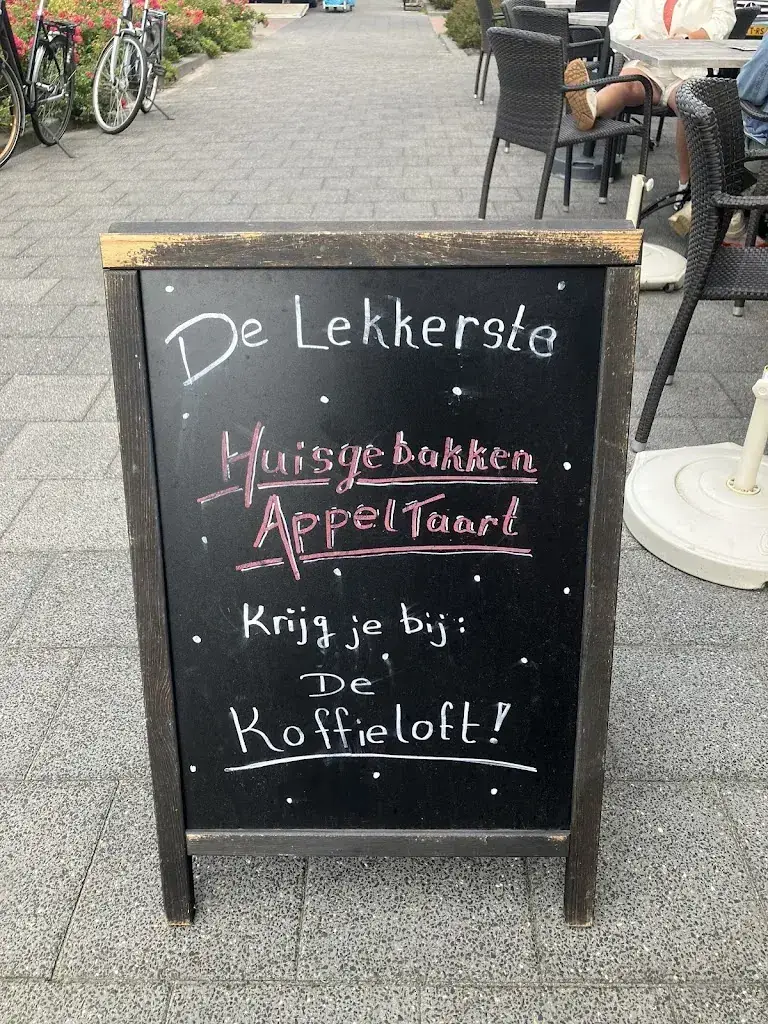 De Lekkerste
Huisgebakken
AppelTaart
Krijg je bij:
De
Koffieloft!